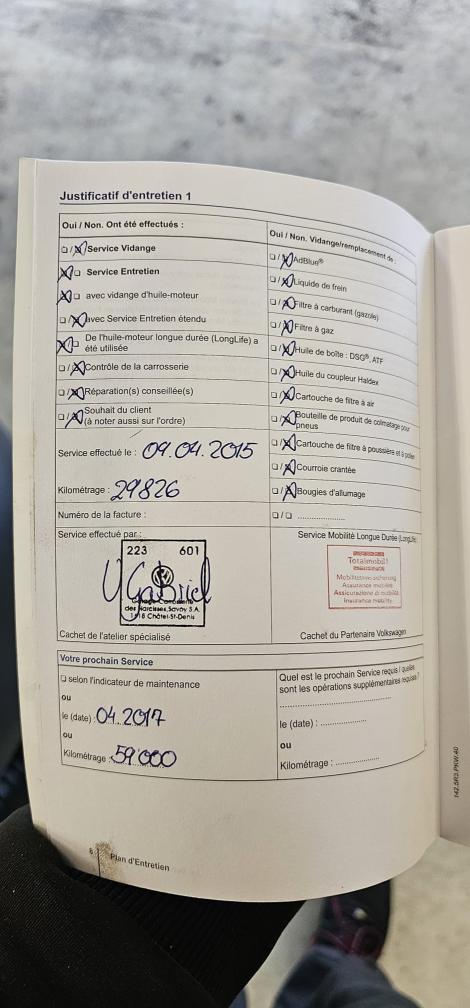 Justificatif d'entretien 1
Oui / Non. Ont été effectués :
❑ / ☒ Service Vidange
☒ ❑ Service Entretien
☒ ❑ avec vidange d'huile-moteur
❑ / ☒ avec Service Entretien étendu
☒ ❑ De l'huile-moteur longue durée (LongLife) a
été utilisée
❑ / ☒ Contrôle de la carrosserie
❑ / ☒ Réparation(s) conseillée(s)
❑ / ☒ Souhait du client
(à noter aussi sur l'ordre)
Service effectué le : 09.04.2015
Kilométrage : 29826
Numéro de la facture :
Oui / Non. Vidange/remplacement de :
❑ / ☒ AdBlue®
❑ / ☒ Liquide de frein
❑ / ☒ Filtre à carburant (gazole)
❑ / ☒ Filtre à gaz
❑ / ☒ Huile de boîte : DSG®, ATF
❑ / ☒ Huile du coupleur Haldex
❑ / ☒ Cartouche de filtre à air
❑ / ☒ Bouteille de produit de colmatage pour
pneus
❑ / ☒ Cartouche de filtre à poussière et à pollen
❑ / ☒ Courroie crantée
❑ / ☒ Bougies d'allumage
❑ / ❑ ......................
Service effectué par :
223 601
Gabriel
des Narcisses, Savoy S.A.
1618 Châtel-St-Denis
Cachet de l'atelier spécialisé
Service Mobilité Longue Durée (LongLife)
Totalmobil!
Mobilitätsversicherung
Assurance mobilité
Assicurazione di mobilità
Insurance mobility
Cachet du Partenaire Volkswagen
Votre prochain Service
❑ selon l'indicateur de maintenance
ou
le (date) : 04.2017
ou
Kilométrage : 59'000
Quel est le prochain Service requis / quelles
sont les opérations supplémentaires requises ?
......................
le (date) : ................
ou
Kilométrage : ................
6 Plan d'Entretien
142.5R3.PKW.40